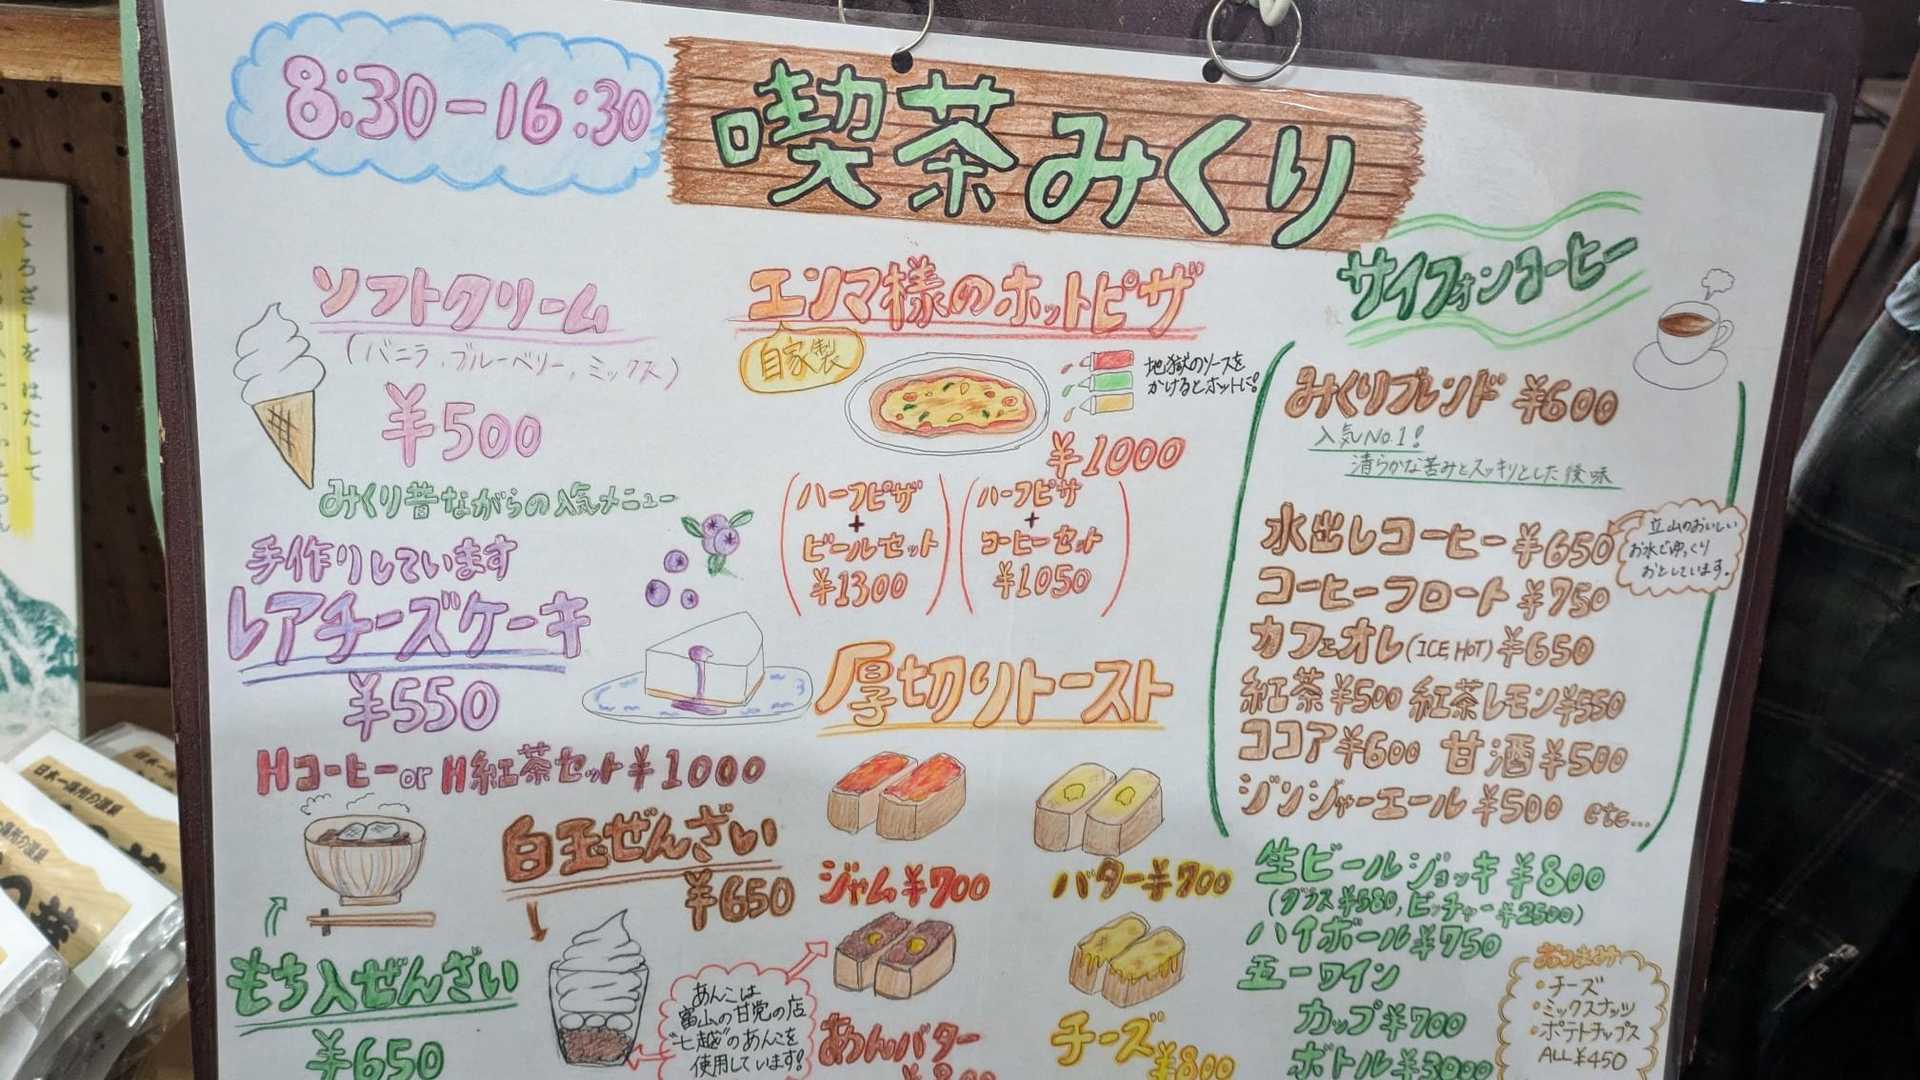 8:30-16:30
喫茶みくり
ソフトクリーム
(バニラ,ブルーベリー,ミックス)
¥500
みくり昔ながらの人気メニュー
手作りしています
レアチーズケーキ
¥550
Hコーヒー or H紅茶セット¥1000
白玉ぜんざい
¥650
もち入ぜんざい
¥650
あんこは
富山の甘党の店
"七越"のあんこを
使用しています!
エンマ様のホットピザ
自家製
地獄のソースを
かけるとホットに!
¥1000
ハーフピザ
+
ビールセット
¥1300
ハーフピザ
+
コーヒーセット
¥1050
厚切りトースト
ジャム¥700
バター¥700
あんバター
¥800
チーズ¥800
サイフォンコーヒー
みくりブレンド ¥600
人気No.1!
清らかな苦みとスッキリとした後味
水出しコーヒー¥650
立山のおいしい
お水でゆっくり
おとしています。
コーヒーフロート ¥750
カフェオレ(ICE,HOT)¥650
紅茶¥500 紅茶レモン¥550
ココア¥600 甘酒¥500
ジンジャーエール¥500 etc...
生ビールジョッキ¥800
(グラス¥580,ピッチャー¥2500)
ハイボール¥750
五一ワイン
カップ¥700
ボトル¥3000
おつまみ
・チーズ
・ミックスナッツ
・ポテトチップス
ALL¥450
こゝろざしを はたして